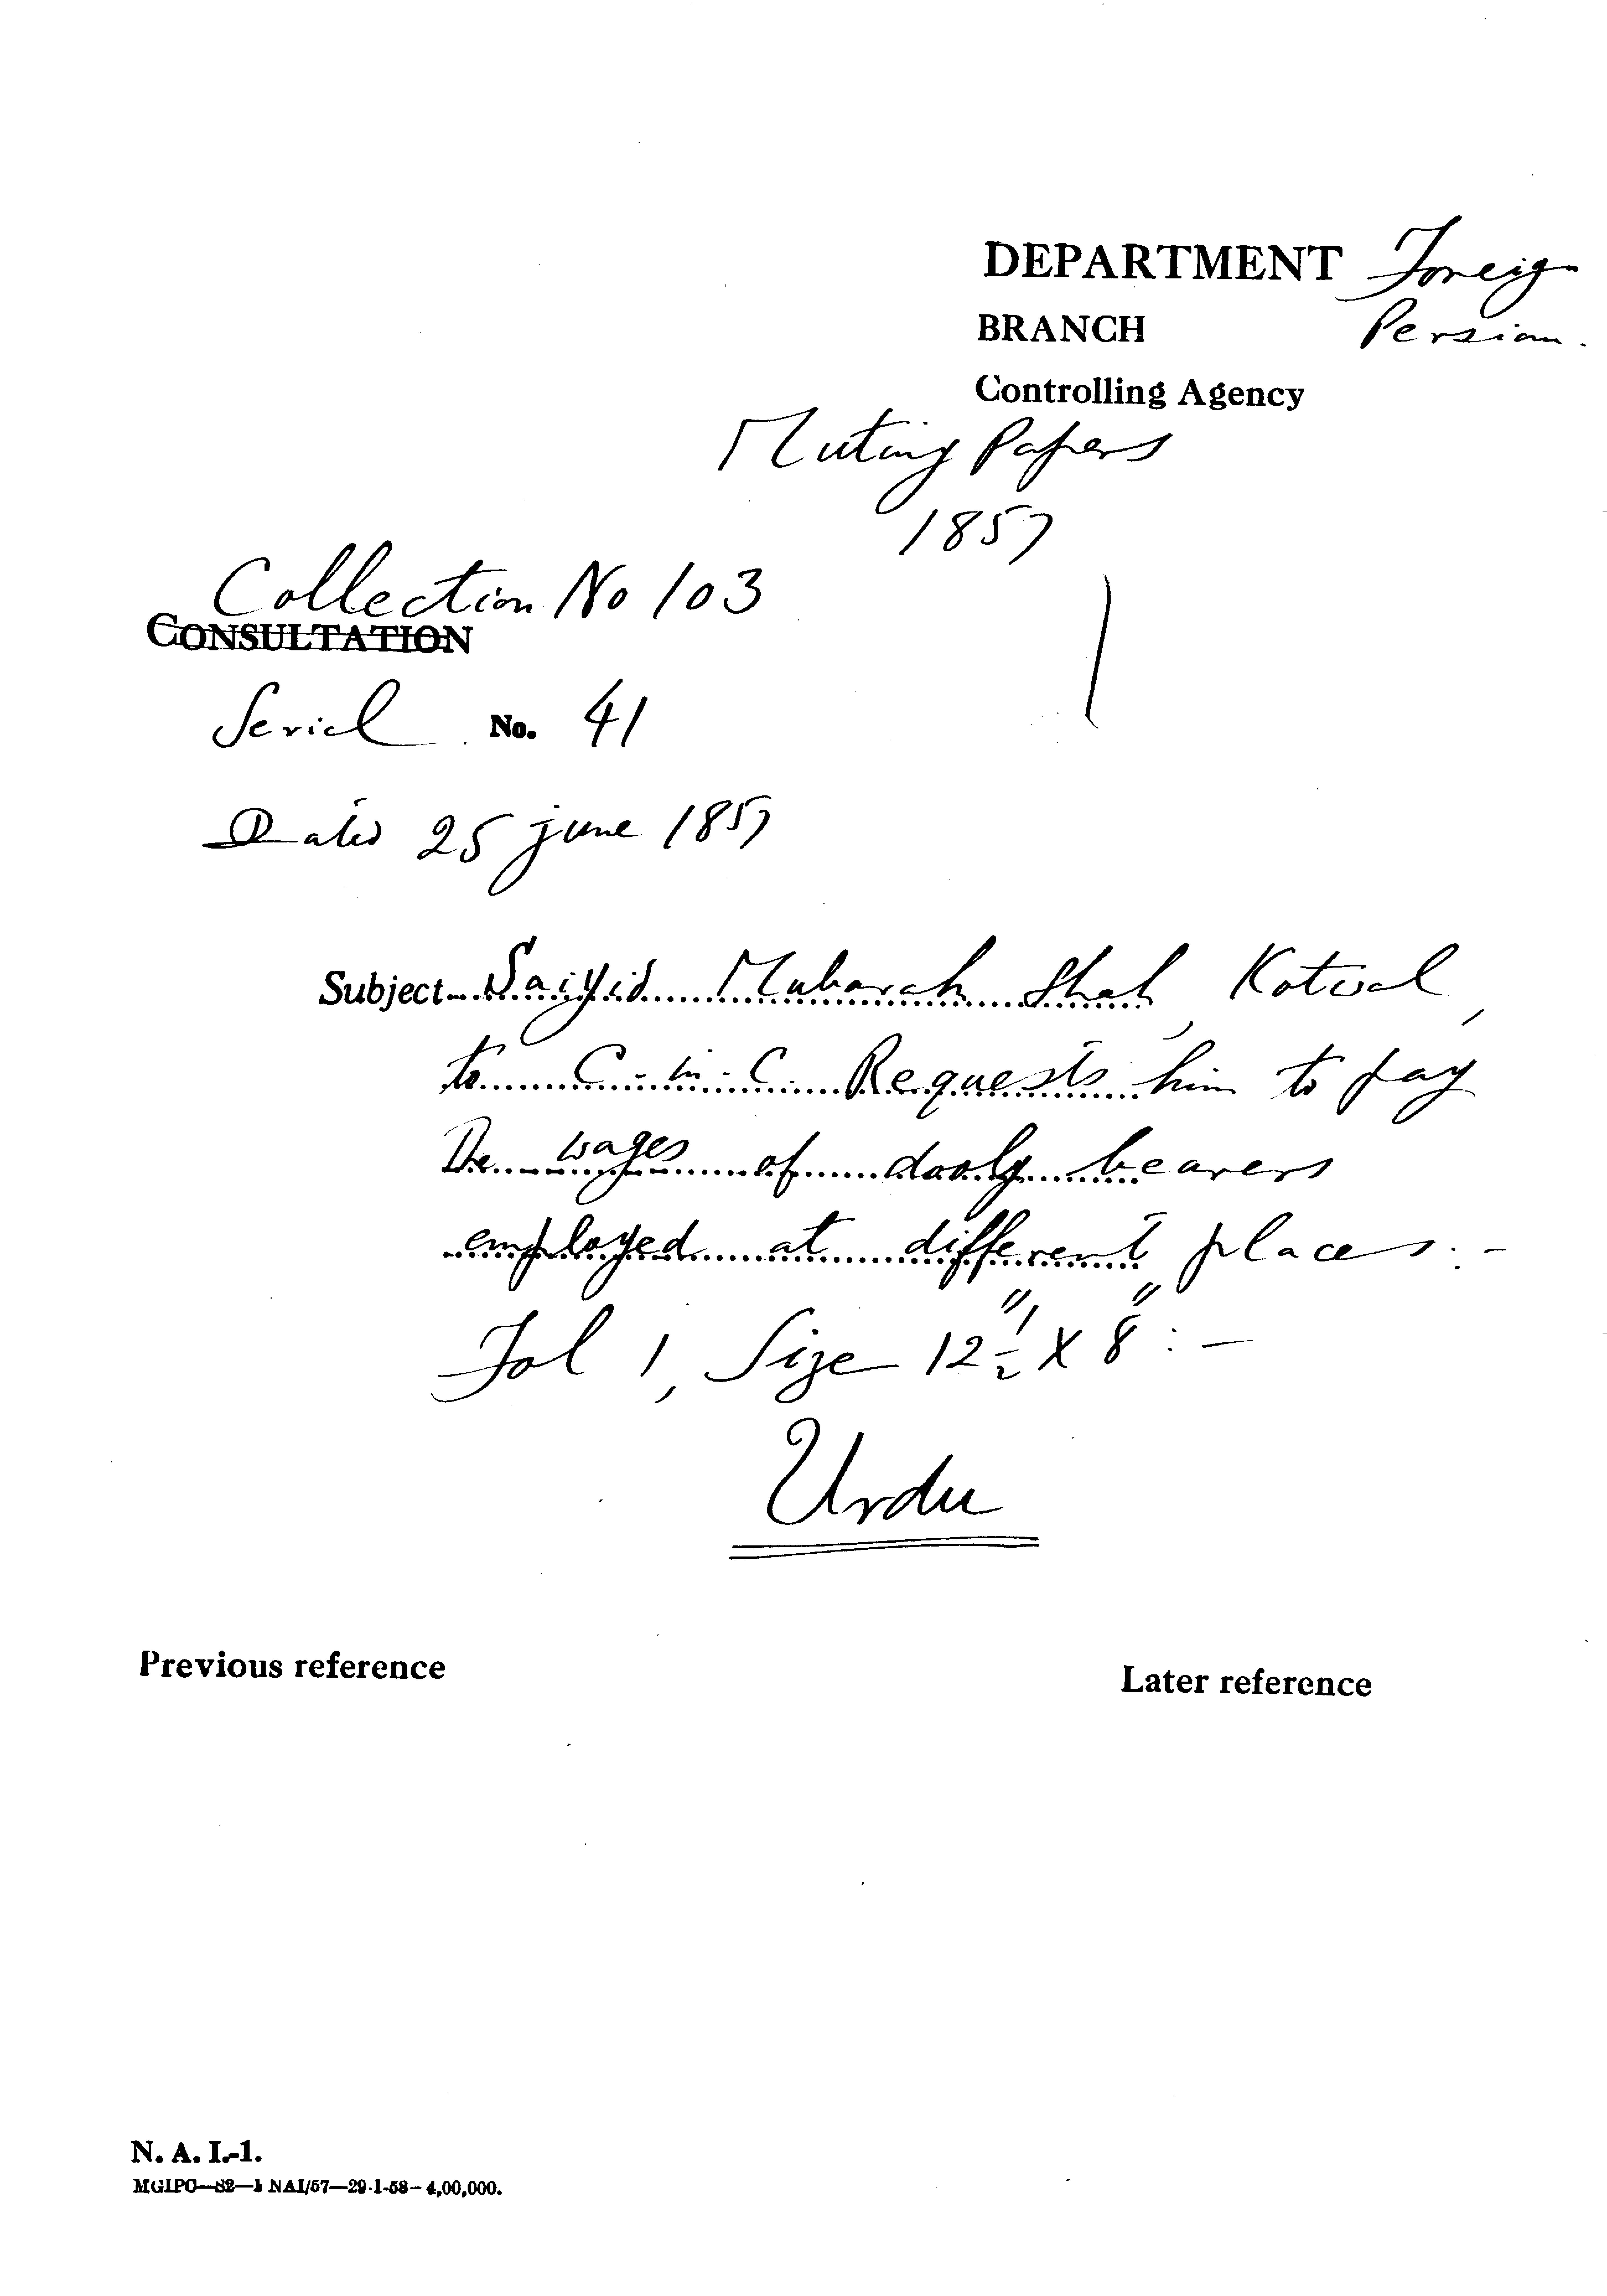 DEPARTMENT Foreign
BRANCH Persian.
Controlling Agency
Mutiny Papers
1857
Collection No 103
CONSULTATION
Serial No. 41
Dated 25 june 1857
Subject Saiyid Mubarak Shah, Kotwal,
to C-in-C. Requests him to pay
The wages of dooly bearers
employed at different places:-
Fol 1, Size 12 1/2" X 8" :-
Urdu
Previous reference
Later reference
N. A. I.-1.
MGIPC—S2—1 NAI/57—29-1-58—4,00,000.